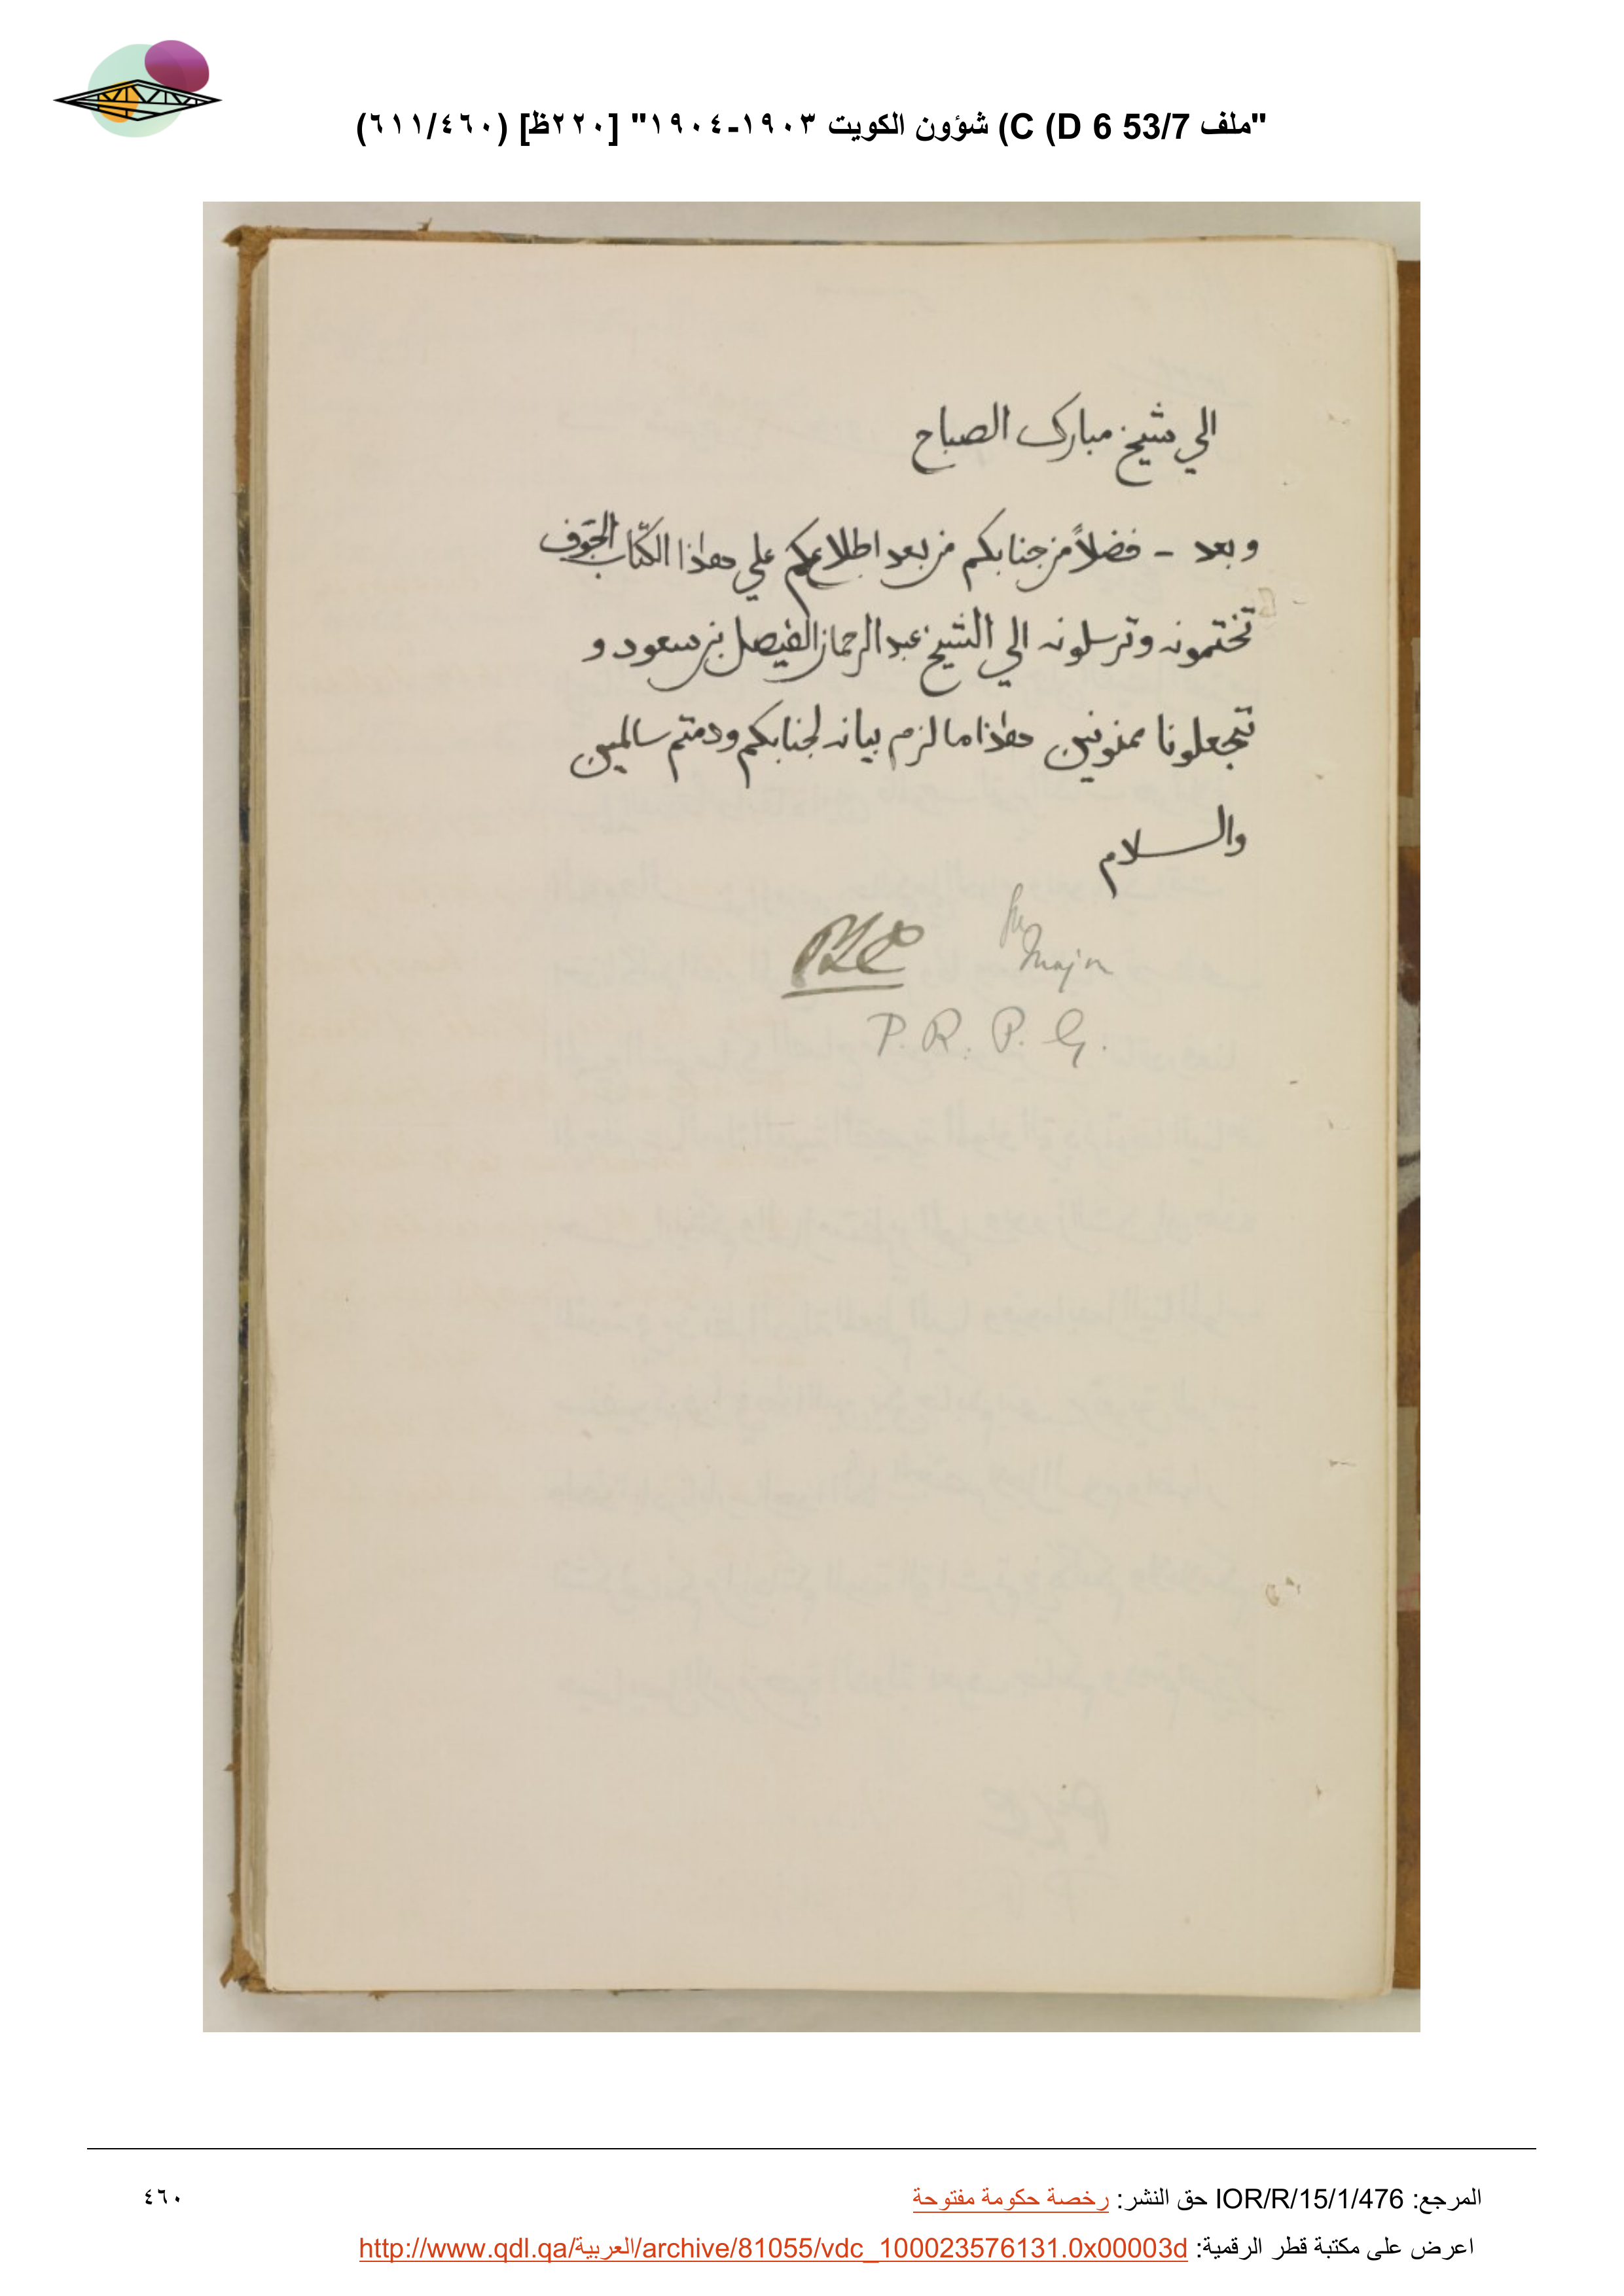 "ملف 53/7 C (D 6) شؤون الكويت ١٩٠٣-١٩٠٤" [٢٢٠ظ] (٤٦٠/٦١١)
الي شيخ مبارك الصباح
وبعد - فضلاً من جنابكم من بعد اطلاعكم علي هذا الكتاب
تختمونه وترسلونه الي الشيخ عبد الرحمان الفيصل بن سعود و
تجعلونا ممنونين هذا ما لزم بيانه لجنابكم ودمتم سالمين
والسلام
Major
P. R. P. G.
المرجع: IOR/R/15/1/476 حق النشر: رخصة حكومة مفتوحة
٤٦٠
اعرض على مكتبة قطر الرقمية: http://www.qdl.qa/العربية/archive/81055/vdc_100023576131.0x00003d